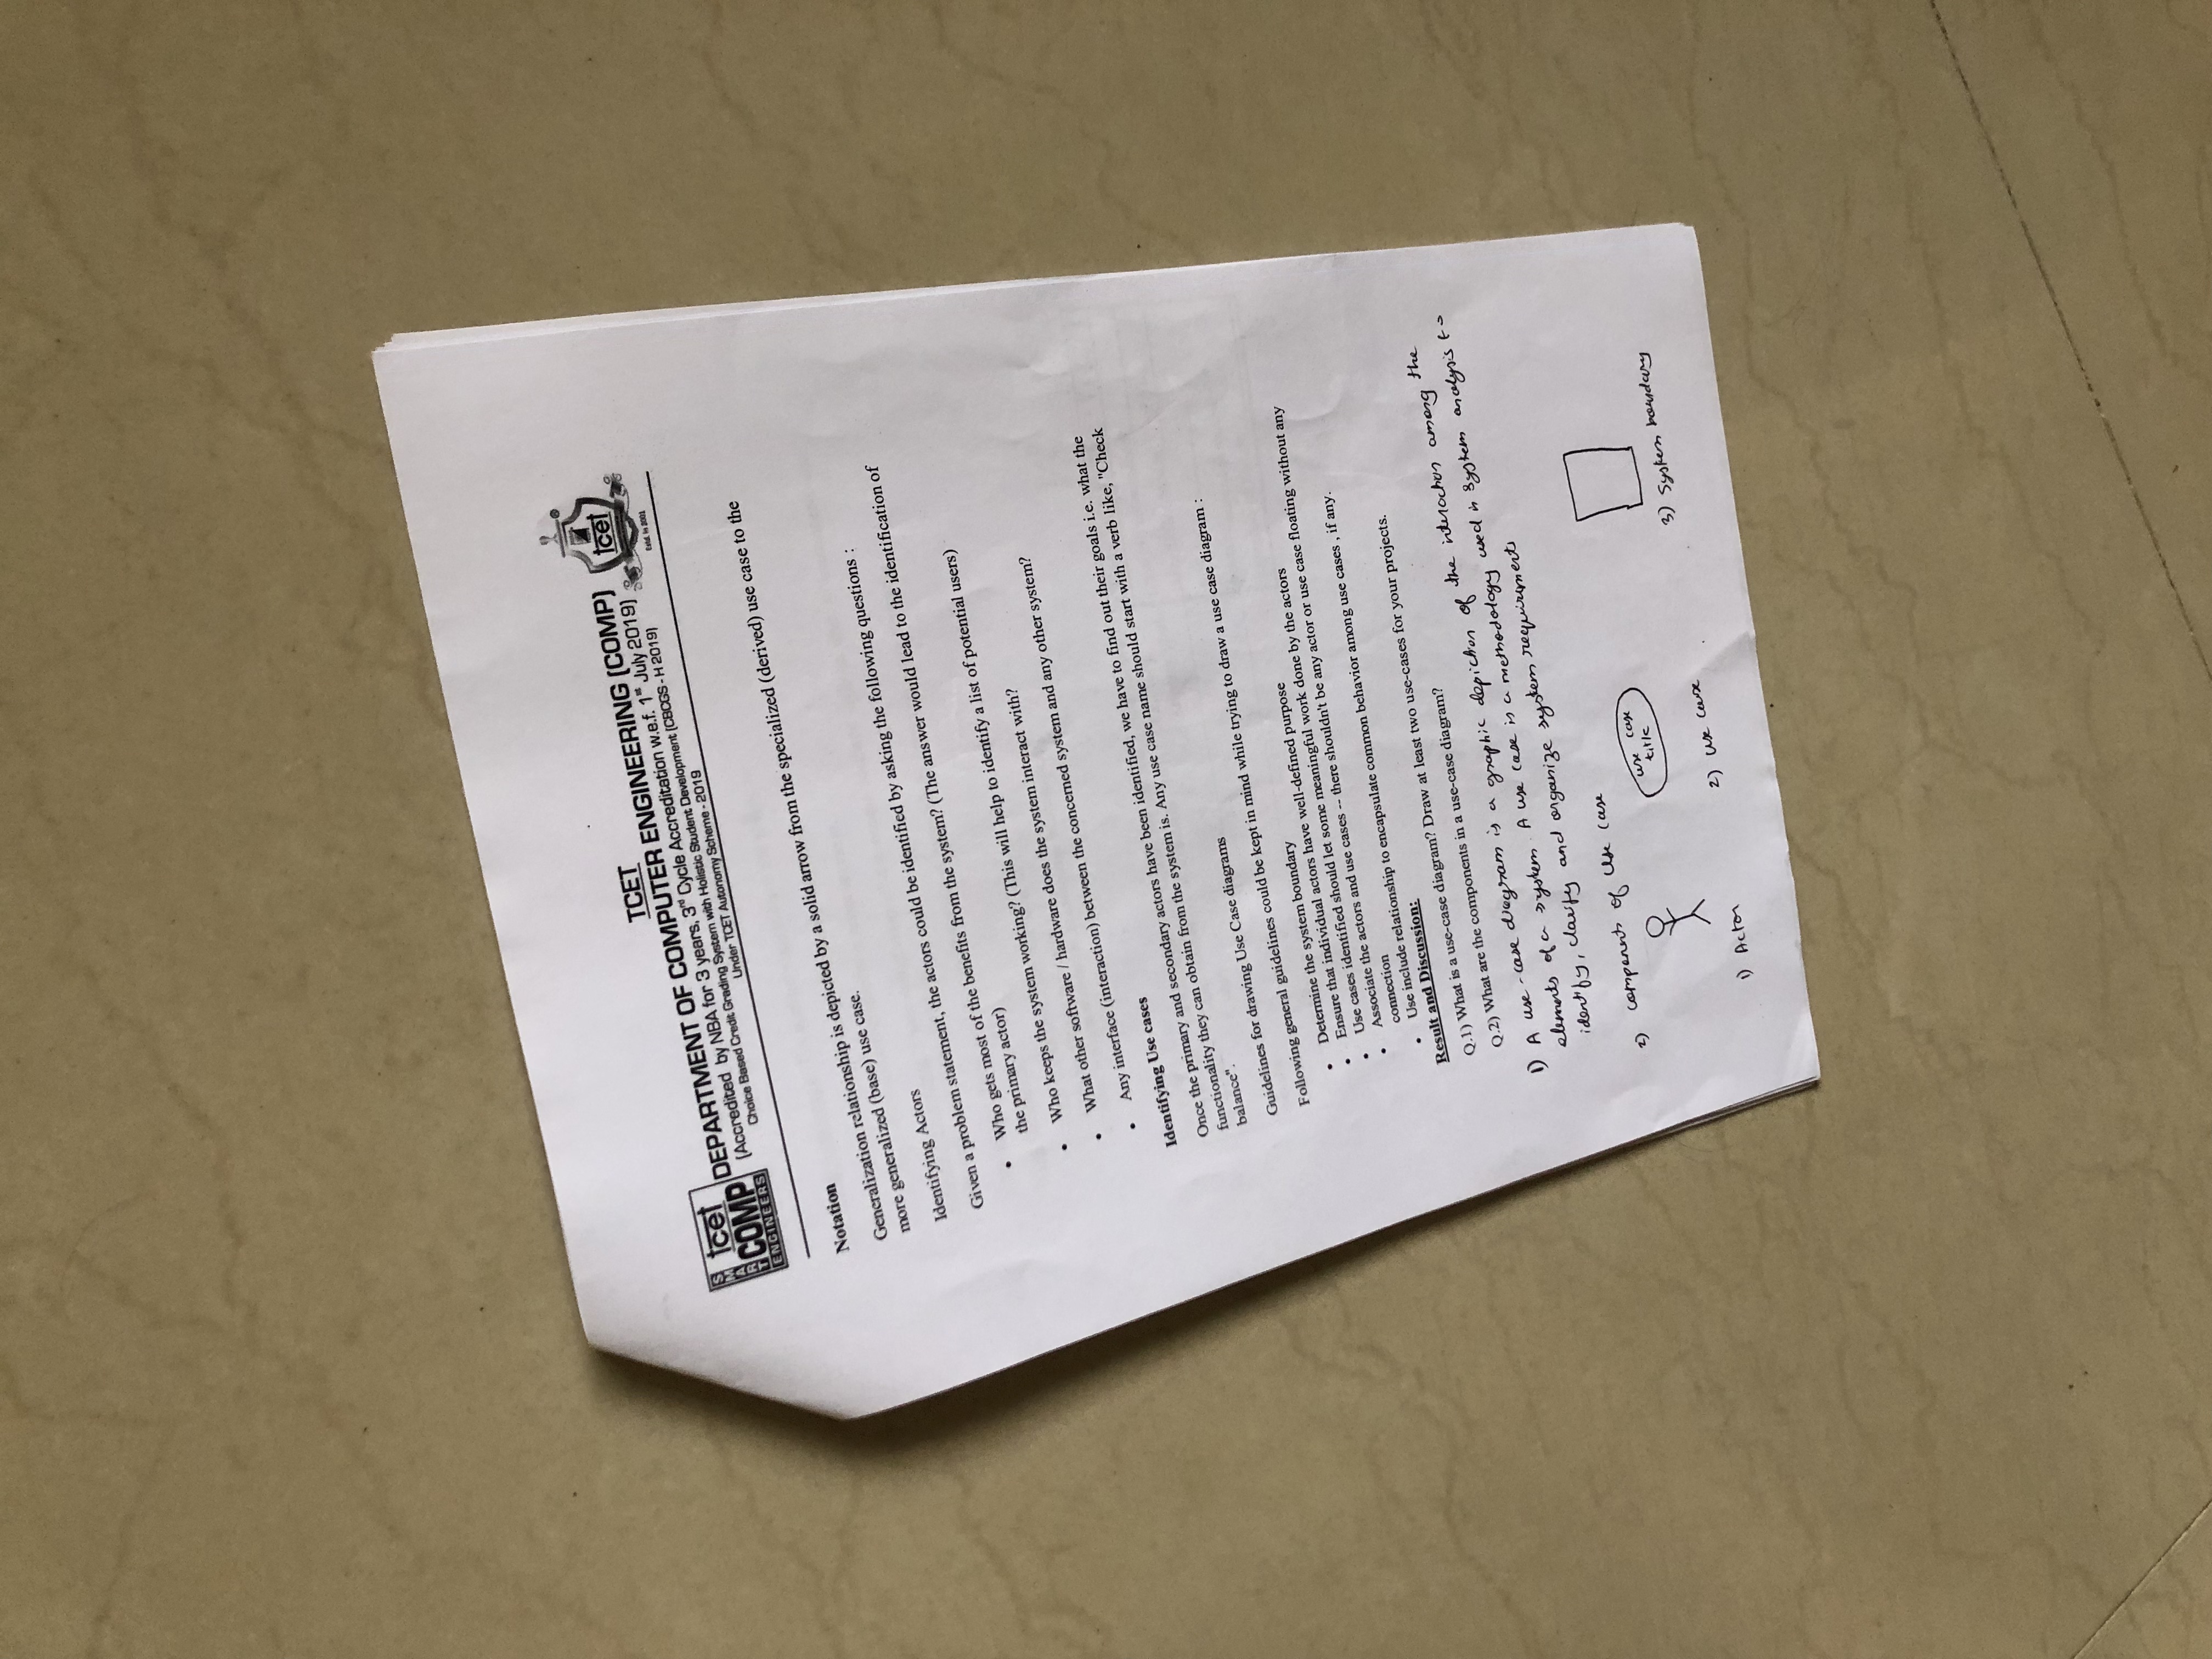 TCET
DEPARTMENT OF COMPUTER ENGINEERING (COMP)
(Accredited by NBA for 3 years, 3rd Cycle Accreditation w.e.f. 1st July 2019)
Choice Based Credit Grading System with Holistic Student Development (CBCGS - H 2019)
Under TCET Autonomy Scheme - 2019
SMART
tcet
COMP
ENGINEERS
tcet
Estd. in 2001
Notation
Generalization relationship is depicted by a solid arrow from the specialized (derived) use case to the
more generalized (base) use case.
Identifying Actors
Given a problem statement, the actors could be identified by asking the following questions :
• Who gets most of the benefits from the system? (The answer would lead to the identification of
the primary actor)
• Who keeps the system working? (This will help to identify a list of potential users)
• What other software / hardware does the system interact with?
• Any interface (interaction) between the concerned system and any other system?
Identifying Use cases
Once the primary and secondary actors have been identified, we have to find out their goals i.e. what the
functionality they can obtain from the system is. Any use case name should start with a verb like, "Check
balance".
Guidelines for drawing Use Case diagrams
Following general guidelines could be kept in mind while trying to draw a use case diagram :
• Determine the system boundary
• Ensure that individual actors have well-defined purpose
• Use cases identified should let some meaningful work done by the actors
• Associate the actors and use cases -- there shouldn't be any actor or use case floating without any
connection
• Use include relationship to encapsulate common behavior among use cases , if any.
Result and Discussion:
Q.1) What is a use-case diagram? Draw at least two use-cases for your projects.
Q.2) What are the components in a use-case diagram?
1) A use-case diagram is a graphic depiction of the interaction among the
elements of a system. A use case is a methodology used in system analysis to
identify, clarify and organize system requirements
2) components of use case
use case
title
1) Actor
2) use case
3) System boundary